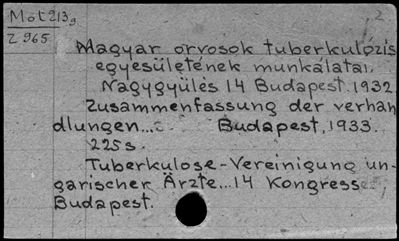 Mot 213g
Z 965
2
Magyar orvosok tuberkulózis
egyesületének munkálatai.
Nagygyülés 14 Budapest. 1932
Zusammenfassung der verhan
dlungen... Budapest, 1933.
225 s.
Tuberkulose-Vereinigung un-
garischer Ärzte...14 Kongresse
Budapest.